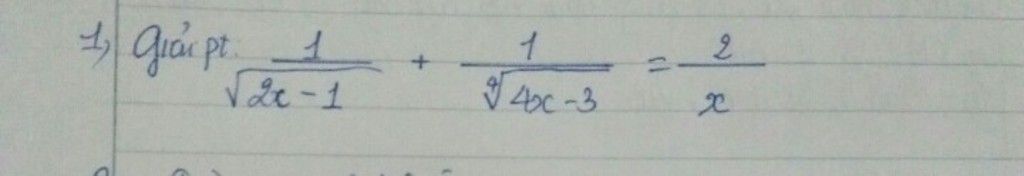 1, Giải pt: \frac{1}{\sqrt{2x-1}} + \frac{1}{\sqrt[4]{4x-3}} = \frac{2}{x}